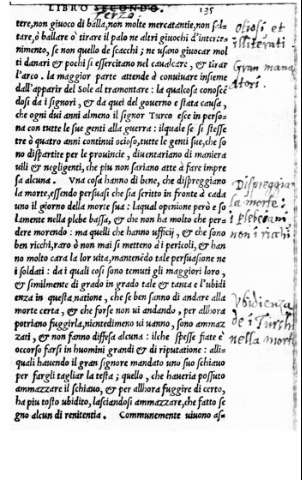 LIBRO SECONDO. 135
Terzo.
tere, non giuoco di balla, non molte mercatantie, non sal-
tare, ò ballare ò tirare il palo ne altri giuochi d'interte
nimento, se non quello de scacchi; ne usano giuocar mol
ti danari & pochi si essercitano nel caualcare, & tirar
l'arco. la maggior parte attende à conuiuare insieme
dall'apparir del Sole al tramontare: la qualcosa conosce
dosi da i signori, & da quei del gouerno e stata causa,
che ogni dui anni almeno il signor Turco esce in perso
na con tutte le sue genti alla guerra: ilquale se si stesse
tre ò quatro anni continui ocioso, tutte le genti sue, che so
no dispartite per le prouincie, diuentariano di maniera
uili & negligenti, che piu non sariano atte à fare impre
sa alcuna. Vna cosa hanno di bene, che dispreggiano
la morte, essendo persuasi che sia scritto in fronte à ciasc
uno il giorno della morte sua: laqual openione però e so
lamente nella plebe bassa, & che non ha molto che per
dere morendo: ma quelli che hanno ufficij, & che sono
ben ricchi, raro ò non mai si metteno à i pericoli, & han
no molto cara la lor uita, mantenédo tale persuasione ne
i soldati: da i quali cosi sono temuti gli maggiori loro,
& similmente di grado in grado tale & tanta e l'ubidi
enza in questa natione, che se ben sanno di andare alla
morte certa, & che forse non ui andando, per allhora
potriano fuggirla, nientedimeno ui uanno, sono ammaz
zati, & non fanno difesa alcuna: ilche spesse fiate è
occorso farsi in huomini grandi & di riputatione: alli-
quali hauendo il gran signore mandato uno suo schiauo
per fargli tagliar la testa; quello, che haueria possuto
ammazzare il schiauo, & per allhora fuggire di certo,
ha piu tosto ubidito, lasciandosi ammazzare, che fatto se
gno alcun di renitentia. Communemente uiuono as-
Otiosi et
illiterati
Gran mana
tori.
Dispreggia
la morte:
i Plebei
non i ricchi
Vbidienza
de i Turchi
nella morte